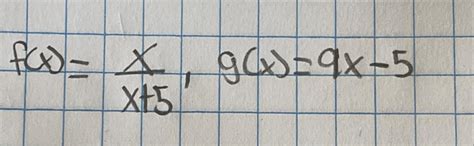 f(x) = x/x+5, g(x) = 9x-5